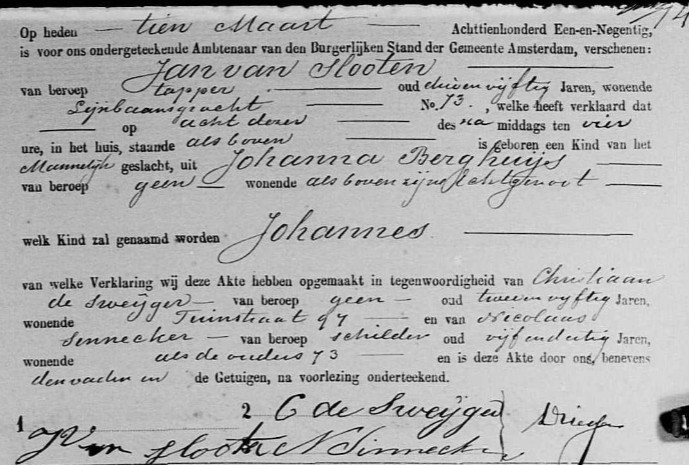 Op heden — tien Maart — Achttienhonderd Een-en-Negentig,
is voor ons ondergeteekende Ambtenaar van den Burgerlijken Stand der Gemeente Amsterdam, verschenen:
Jan van Slooten
van beroep tapper oud drie en vijftig Jaren, wonende
Lijnbaansgracht No. 73. , welke heeft verklaard dat
op acht dezer des na middags ten vier
ure, in het huis, staande als boven is geboren een Kind van het
Mannelijk geslacht, uit Johanna Berghuijs
van beroep geen — wonende als boven zijne Echtgenoot
welk Kind zal genaamd worden Johannes
van welke Verklaring wij deze Akte hebben opgemaakt in tegenwoordigheid van Christiaan
de Sweijger — van beroep geen — oud twee en vijftig Jaren,
wonende Tuinstraat 97 — en van Nicolaas
Sennecker — van beroep schilder oud vijf en dertig Jaren,
wonende als de ouders 73 en is deze Akte door ons, benevens
den vader en de Getuigen, na voorlezing onderteekend.
1 2 C de Sweijger
J Van Slooten N Sinnecker